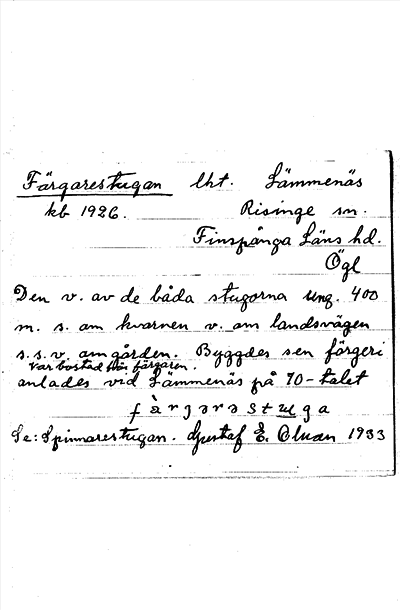 Färgarestugan lht. Lämmenäs
kb 1926. Risinge sn.
Finspånga Läns hd.
Ögl
Den v. av de båda stugorna ung. 400
m. s. om kvarnen v. om landsvägen
s.s.v. om gården. Byggdes sen färgeri
var bostad för färgaren.
anlades vid Lämmenäs på 70-talet
Se: Spinnarestugan. Gustaf E. Olson 1933